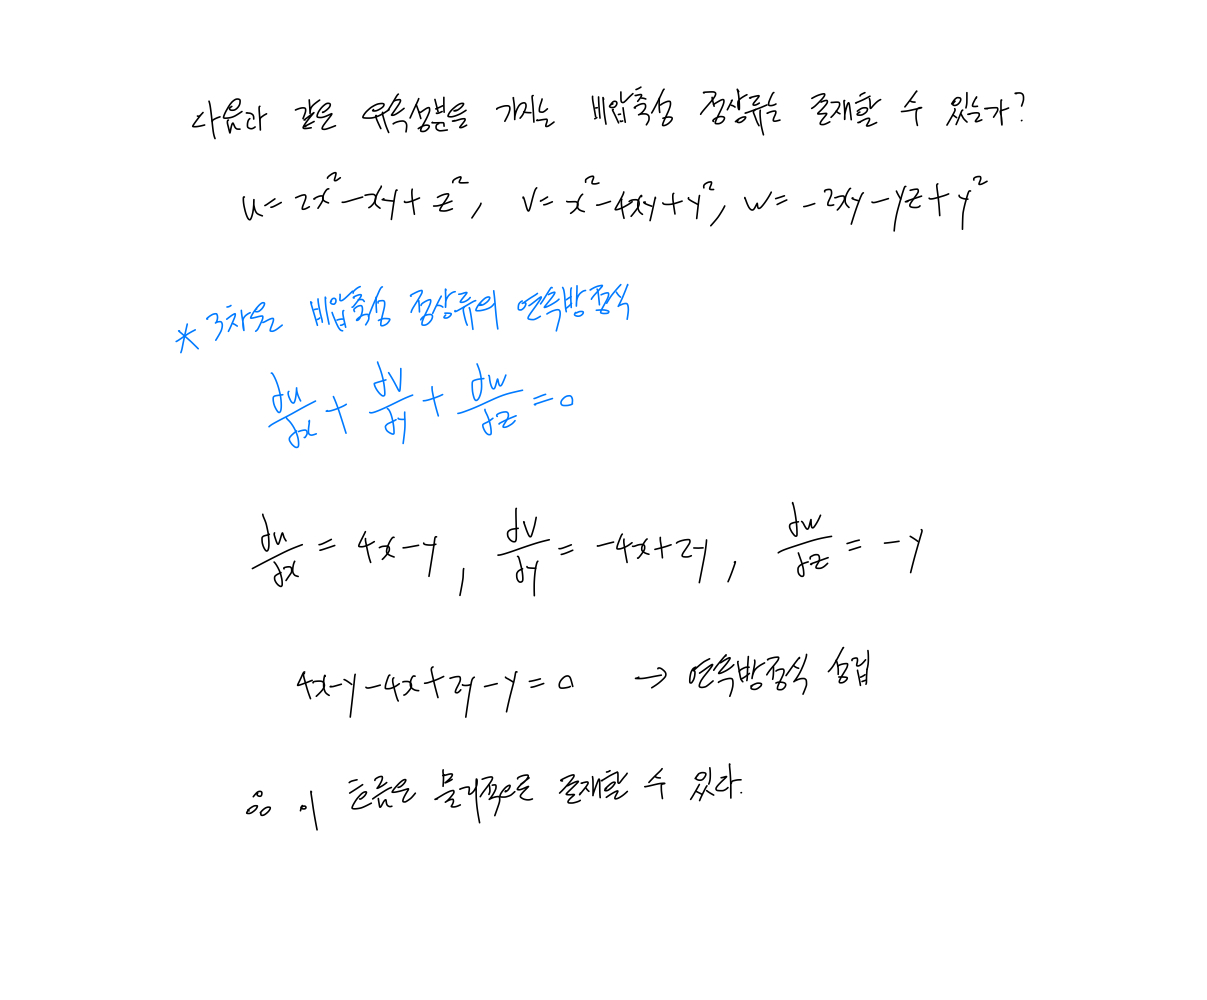 다음과 같은 유속성분을 가지는 비압축성 정상류는 존재할 수 있는가?
u = 2x² - xy + z², v = x² - 4xy + y², w = -2xy - yz + y²
* 3차원 비압축성 정상류의 연속방정식
∂u/∂x + ∂v/∂y + ∂w/∂z = 0
∂u/∂x = 4x - y, ∂v/∂y = -4x + 2y, ∂w/∂z = -y
4x - y - 4x + 2y - y = 0 → 연속방정식 성립
∴ 이 흐름은 물리적으로 존재할 수 있다.